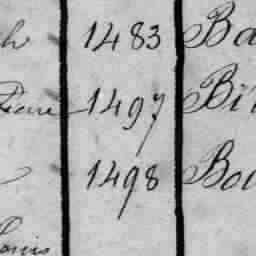 1483 Ba
Pierre 1497 Bi
1498 Bou
Louis